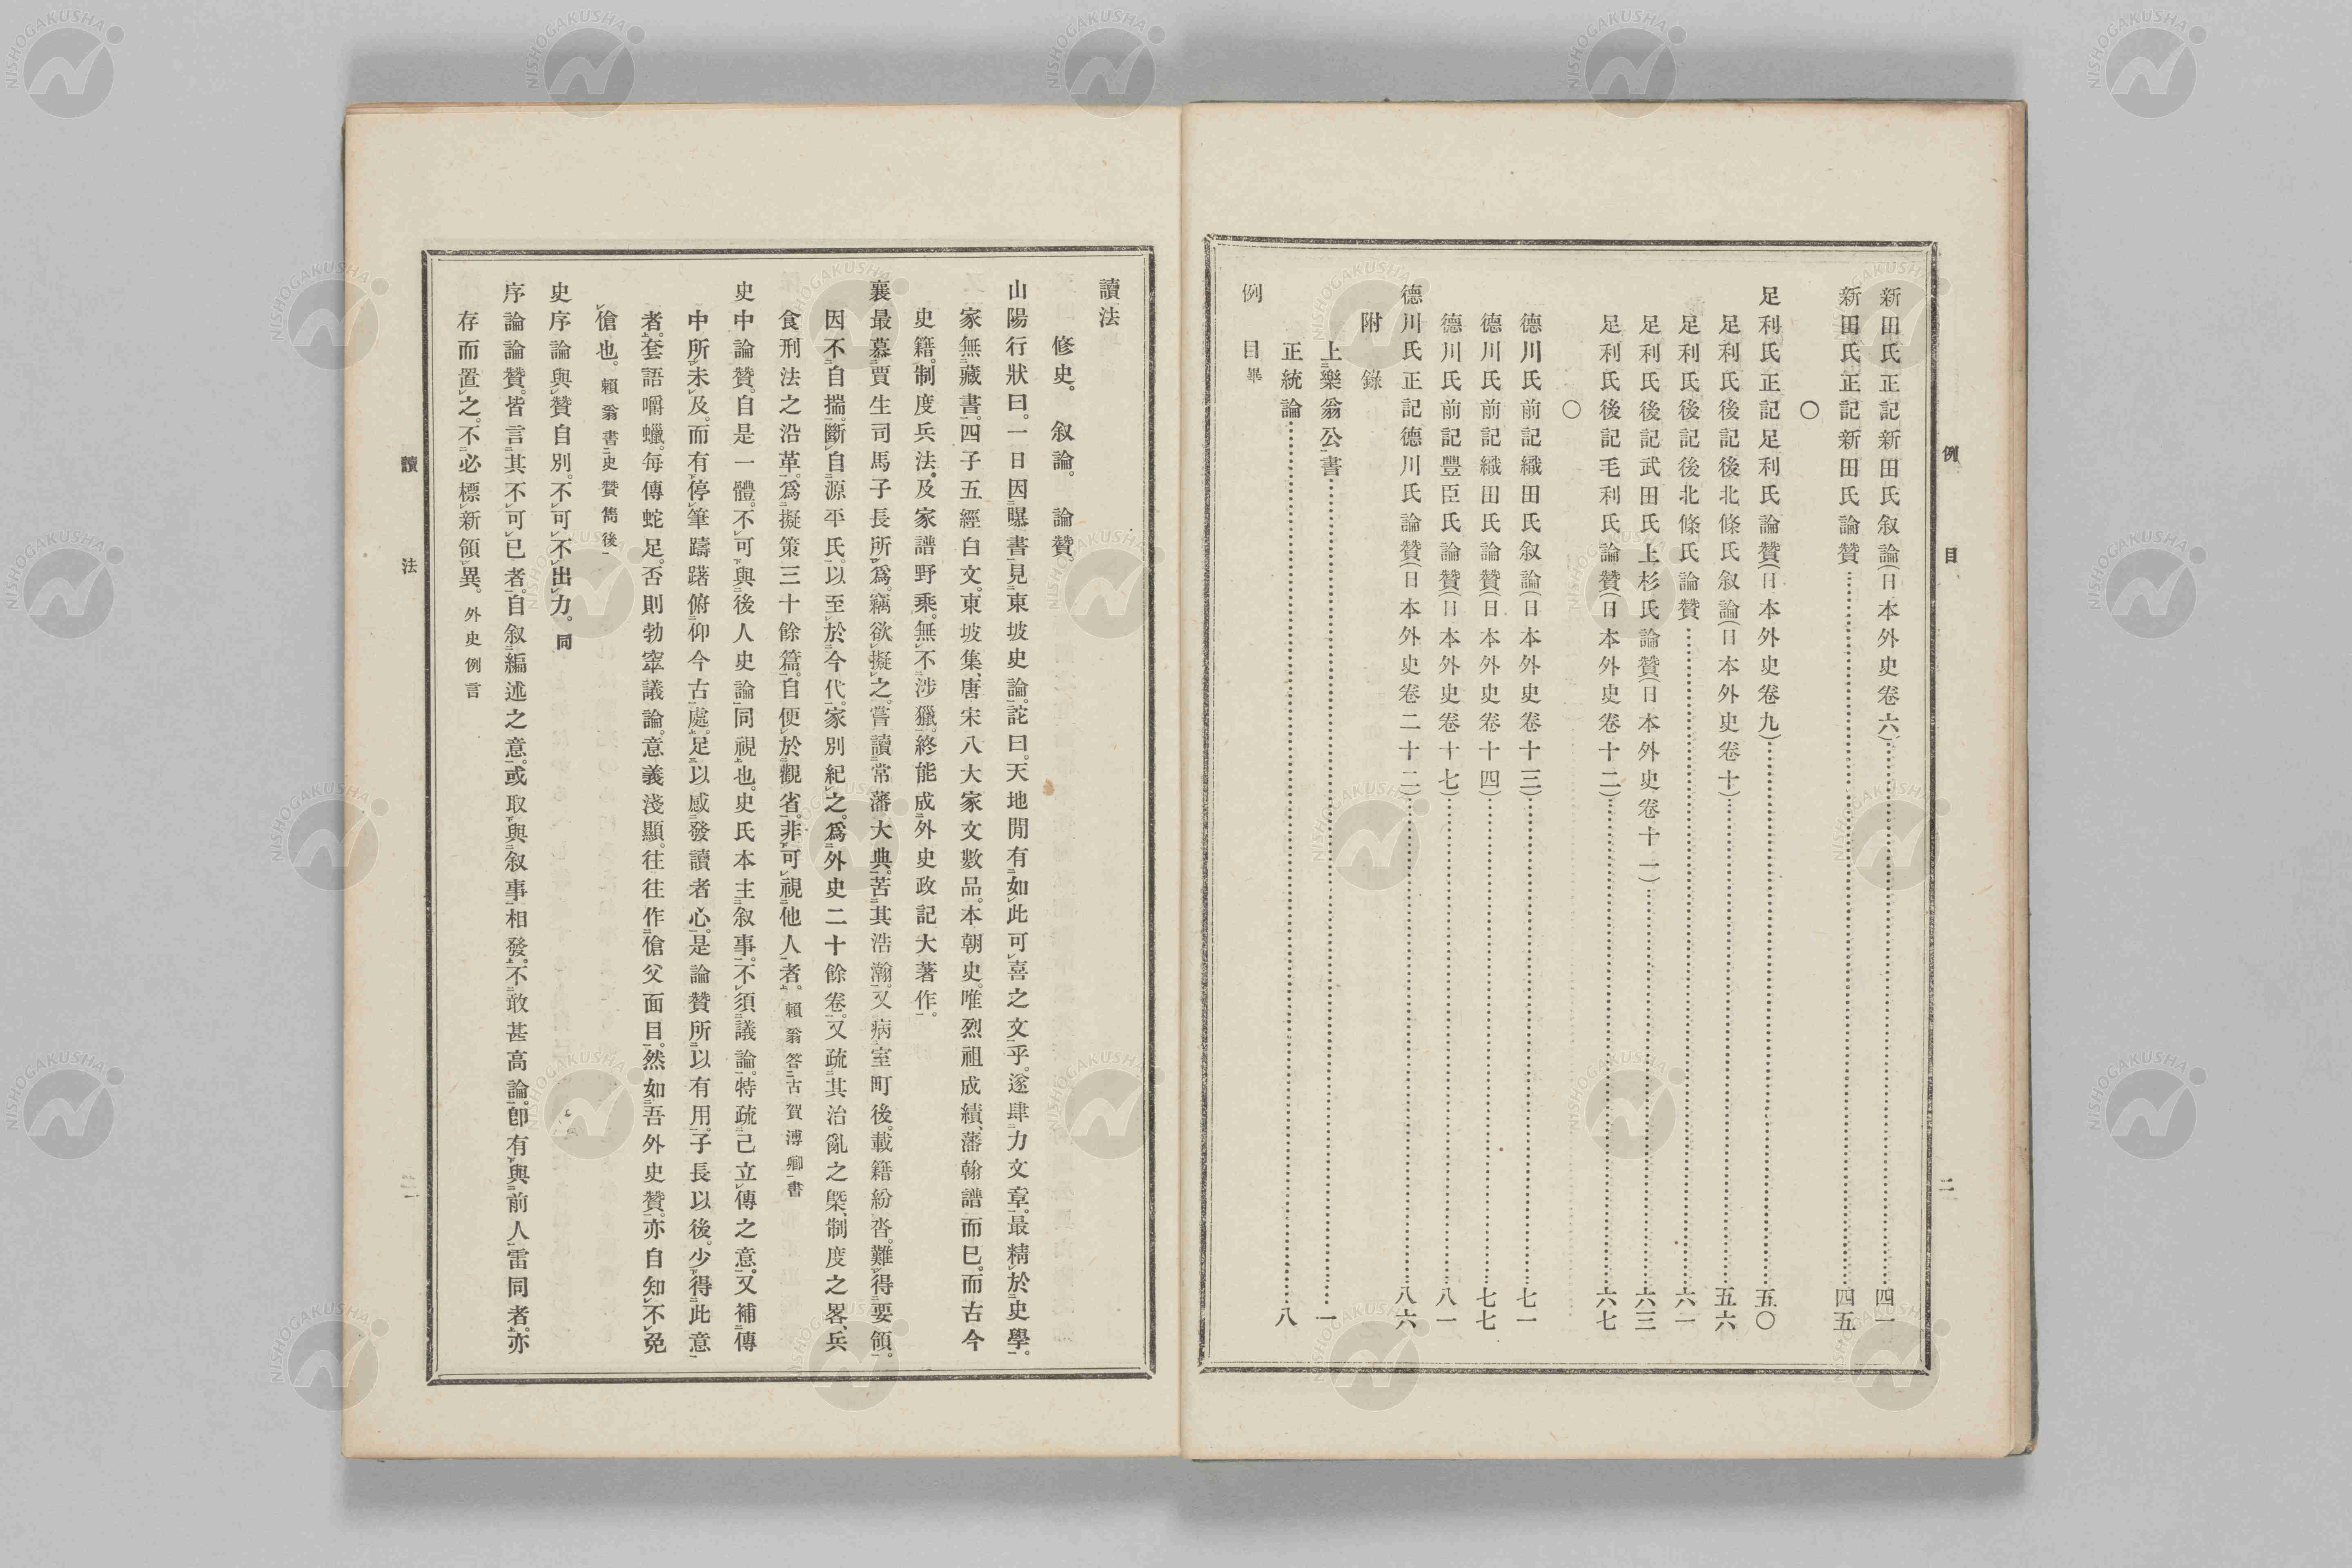 例目
二
新田氏正記新田氏叙論(日本外史卷六)……四一
新田氏正記新田氏論贊……四五
〇
足利氏正記足利氏論贊(日本外史卷九)……五〇
足利氏後記後北條氏叙論(日本外史卷十)……五六
足利氏後記後北條氏論贊……六一
足利氏後記武田氏上杉氏論贊(日本外史卷十一)……六三
足利氏後記毛利氏論贊(日本外史卷十二)……六七
〇
德川氏前記織田氏叙論(日本外史卷十三)……七一
德川氏前記織田氏論贊(日本外史卷十四)……七七
德川氏前記豐臣氏論贊(日本外史卷十七)……八一
德川氏正記德川氏論贊(日本外史卷二十二)……八六
附錄
上㆓樂翁公㆒書……一
正統論……八
例目畢
讀法
修史。叙論。論贊。
山陽行狀曰。一日因曝㆑書。見㆓東坡史論㆒。詫曰。天地閒有㆓如㆑此可㆑喜之文㆒乎。遂肆㆓力文章㆒。最精㆓於史學㆒。
家無㆓藏書㆒。四子五經白文。東坡集、唐宋八大家文數品。本朝史。唯烈祖成績、藩翰譜而已。而古今
史籍。制度兵法。及家譜野乘。無㆑不㆓涉獵㆒。終能成㆓外史政記大著作㆒。
襄最慕㆓賈生司馬子長所㆒㆑爲。竊欲㆑擬㆑之。嘗讀㆓常藩大典㆒。苦㆓其浩瀚㆒。又病㆘室町後。載籍紛沓。難㆗得㆓要領㆒。
因不㆓自揣㆒。斷㆑自㆓源平氏㆒。以至㆓於今代㆒。家別紀㆑之。爲㆓外史二十餘卷㆒。又疏㆓其治亂之槩、制度之畧、兵
食刑法之沿革㆒。爲㆓擬策三十餘篇㆒。自便㆓於觀省㆒。非㆘可㆑視㆓他人㆒者㆖。賴翁答㆓古賀溥卿㆒書
史中論贊。自是一體。不㆑可㆘與㆓後人史論㆒同視㆖也。史氏本主㆓叙事㆒。不㆑須㆓議論㆒。特疏㆓己立㆑傳之意㆒。又補㆓傳
中所㆒㆑未㆑及。而有㆘停㆑筆躊躇俯㆓仰今古㆒處㆖。足㆔以感㆓發讀者心㆒。是論贊所㆓以有用㆒。子長以後。少㆘得㆓此意㆒
者㆖。套語嚼蠟。每傳蛇足。否則勃窣議論。意義淺顯。往往作㆓傖父面目㆒。然如㆓吾外史贊㆒。亦自知㆑不㆑免
㆑傖也。賴翁書㆓史贊雋後㆒
史序論與㆑贊自別。不㆑可㆑不㆑出㆑力。同
序論論贊。皆言㆓其不㆒㆑可㆑已者。自叙㆓編述之意㆒。或取㆘與㆓叙事㆒相發㆖。不㆓敢甚高論㆒。卽有㆘與㆓前人㆒雷同者㆖。亦
存而置㆑之。不㆓必標㆑新領㆒㆑異。外史例言
讀法
一